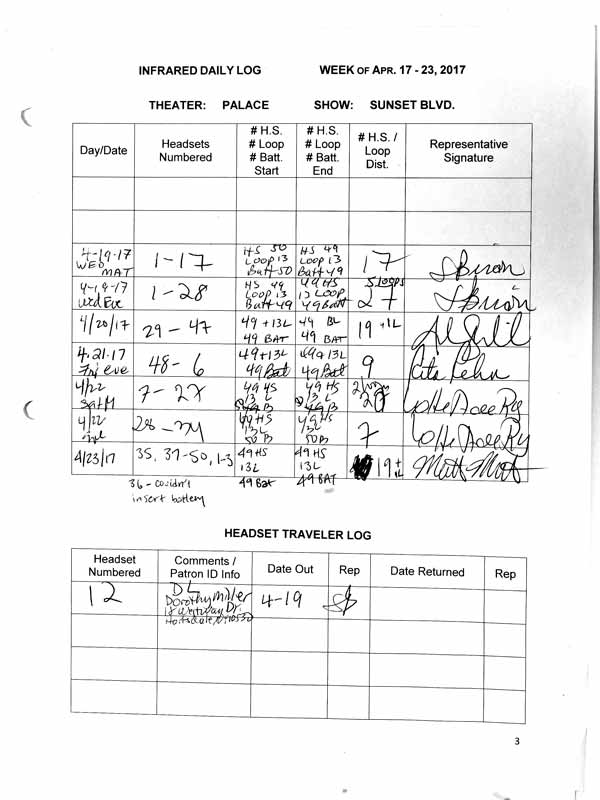 INFRARED DAILY LOG WEEK OF APR. 17 - 23, 2017
THEATER: PALACE SHOW: SUNSET BLVD.
Day/Date Headsets Numbered # H.S. # Loop # Batt. Start # H.S. # Loop # Batt. End # H.S. / Loop Dist. Representative Signature
4-19-17 WED MAT 1-17 HS 50 Loop 13 Batt 50 HS 49 Loop 13 Batt 49 17
4-19-17 Wed Eve 1-28 HS 49 Loop 13 Batt 49 49 HS 13 Loop 49 Batt 5 loops 27
4/20/17 29-47 49 + 13L 49 BAT 49 BL 49 BAT 19 + 1L
4.21.17 Fri eve 48-6 49+13L 49 Bat 49+13L 49 Bat 9
4/22 Sat M 7-27 49 HS 13 L 49 B 49 HS 13 L 49 B
4/22 28-34 49 HS 13 L 50 B 49 HS 13 L 50 B 7
4/23/17 35, 37-50, 1-3 49 HS 13L 49 Bat 49 HS 13L 49 BAT 19 + 1L
36 - couldn't
insert battery
HEADSET TRAVELER LOG
Headset Numbered Comments / Patron ID Info Date Out Rep Date Returned Rep
12 DL Dorothy Miller Dr. 4-19
3